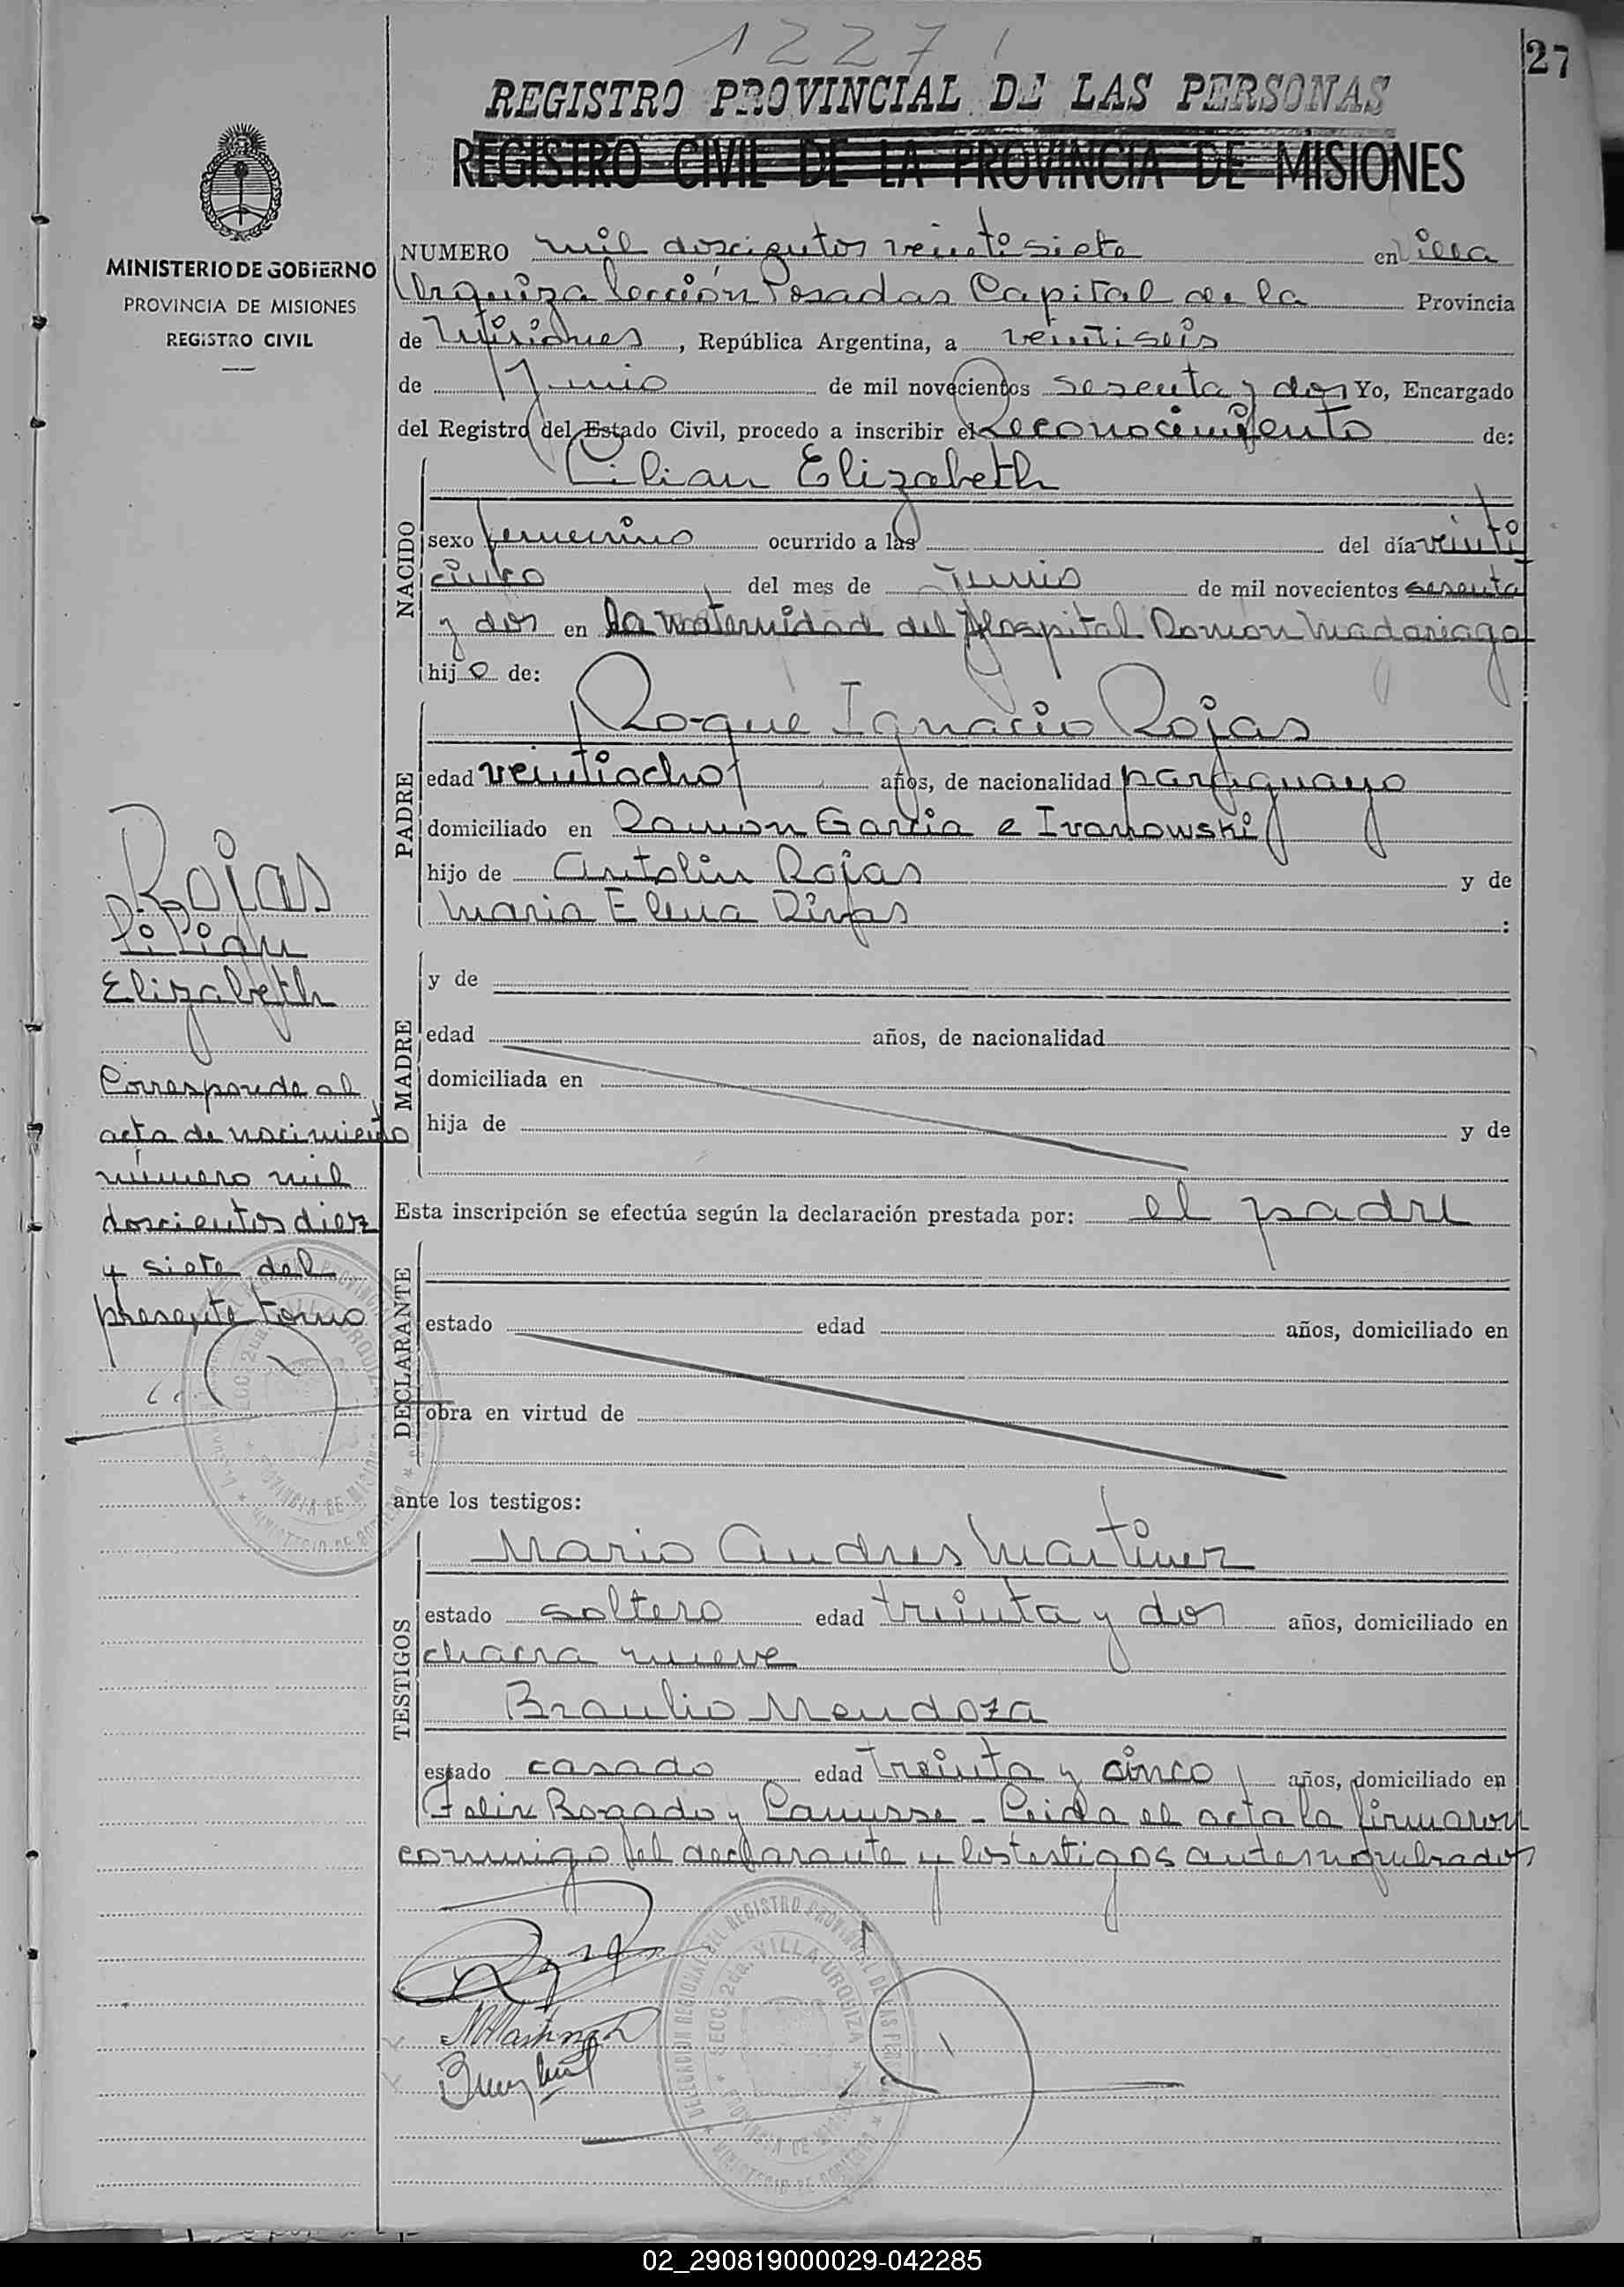 1227
27
REGISTRO PROVINCIAL DE LAS PERSONAS
REGISTRO CIVIL DE LA PROVINCIA DE MISIONES
MINISTERIO DE GOBIERNO
PROVINCIA DE MISIONES
REGISTRO CIVIL
NUMERO mil doscientos veintisiete en Villa
Urquiza Sección Posadas Capital de la Provincia
de Misiones, República Argentina, a veintiseis
de Junio de mil novecientos sesenta y dos Yo, Encargado
del Registro del Estado Civil, procedo a inscribir el Reconocimiento de:
NACIDO
Lilian Elizabeth
sexo femenino ocurrido a las del día veinti
cinco del mes de Junio de mil novecientos sesenta
y dos en la maternidad del Hospital Ramon Madariaga
hij o de:
PADRE
Roque Ignacio Rojas
edad veintiocho años, de nacionalidad paraguayo
domiciliado en Ramon Garcia e Ivanowski
hijo de Antolin Rojas y de
Maria Elena Rivas :
MADRE
y de
edad años, de nacionalidad
domiciliada en
hija de y de
Esta inscripción se efectúa según la declaración prestada por: el padre
DECLARANTE
estado edad años, domiciliado en
obra en virtud de
ante los testigos:
TESTIGOS
Mario Andres Martinez
estado soltero edad treinta y dos años, domiciliado en
chacra nueve
Braulio Mendoza
estado casado edad treinta y cinco años, domiciliado en
Felix Bogado y Lanusse - Leida el acta la firmaron
conmigo el declarante y los testigos antes nombrados
Rojas
Lilian
Elizabeth
Corresponde al
acta de nacimiento
número mil
doscientos diez
y siete del
presente tomo
DELEGACION REGIONAL DEL REGISTRO PROVINCIAL DE LAS PERSONAS
SECC. 2da. VILLA URQUIZA
PROVINCIA DE MISIONES
MINISTERIO DE GOBIERNO
02_290819000029-042285